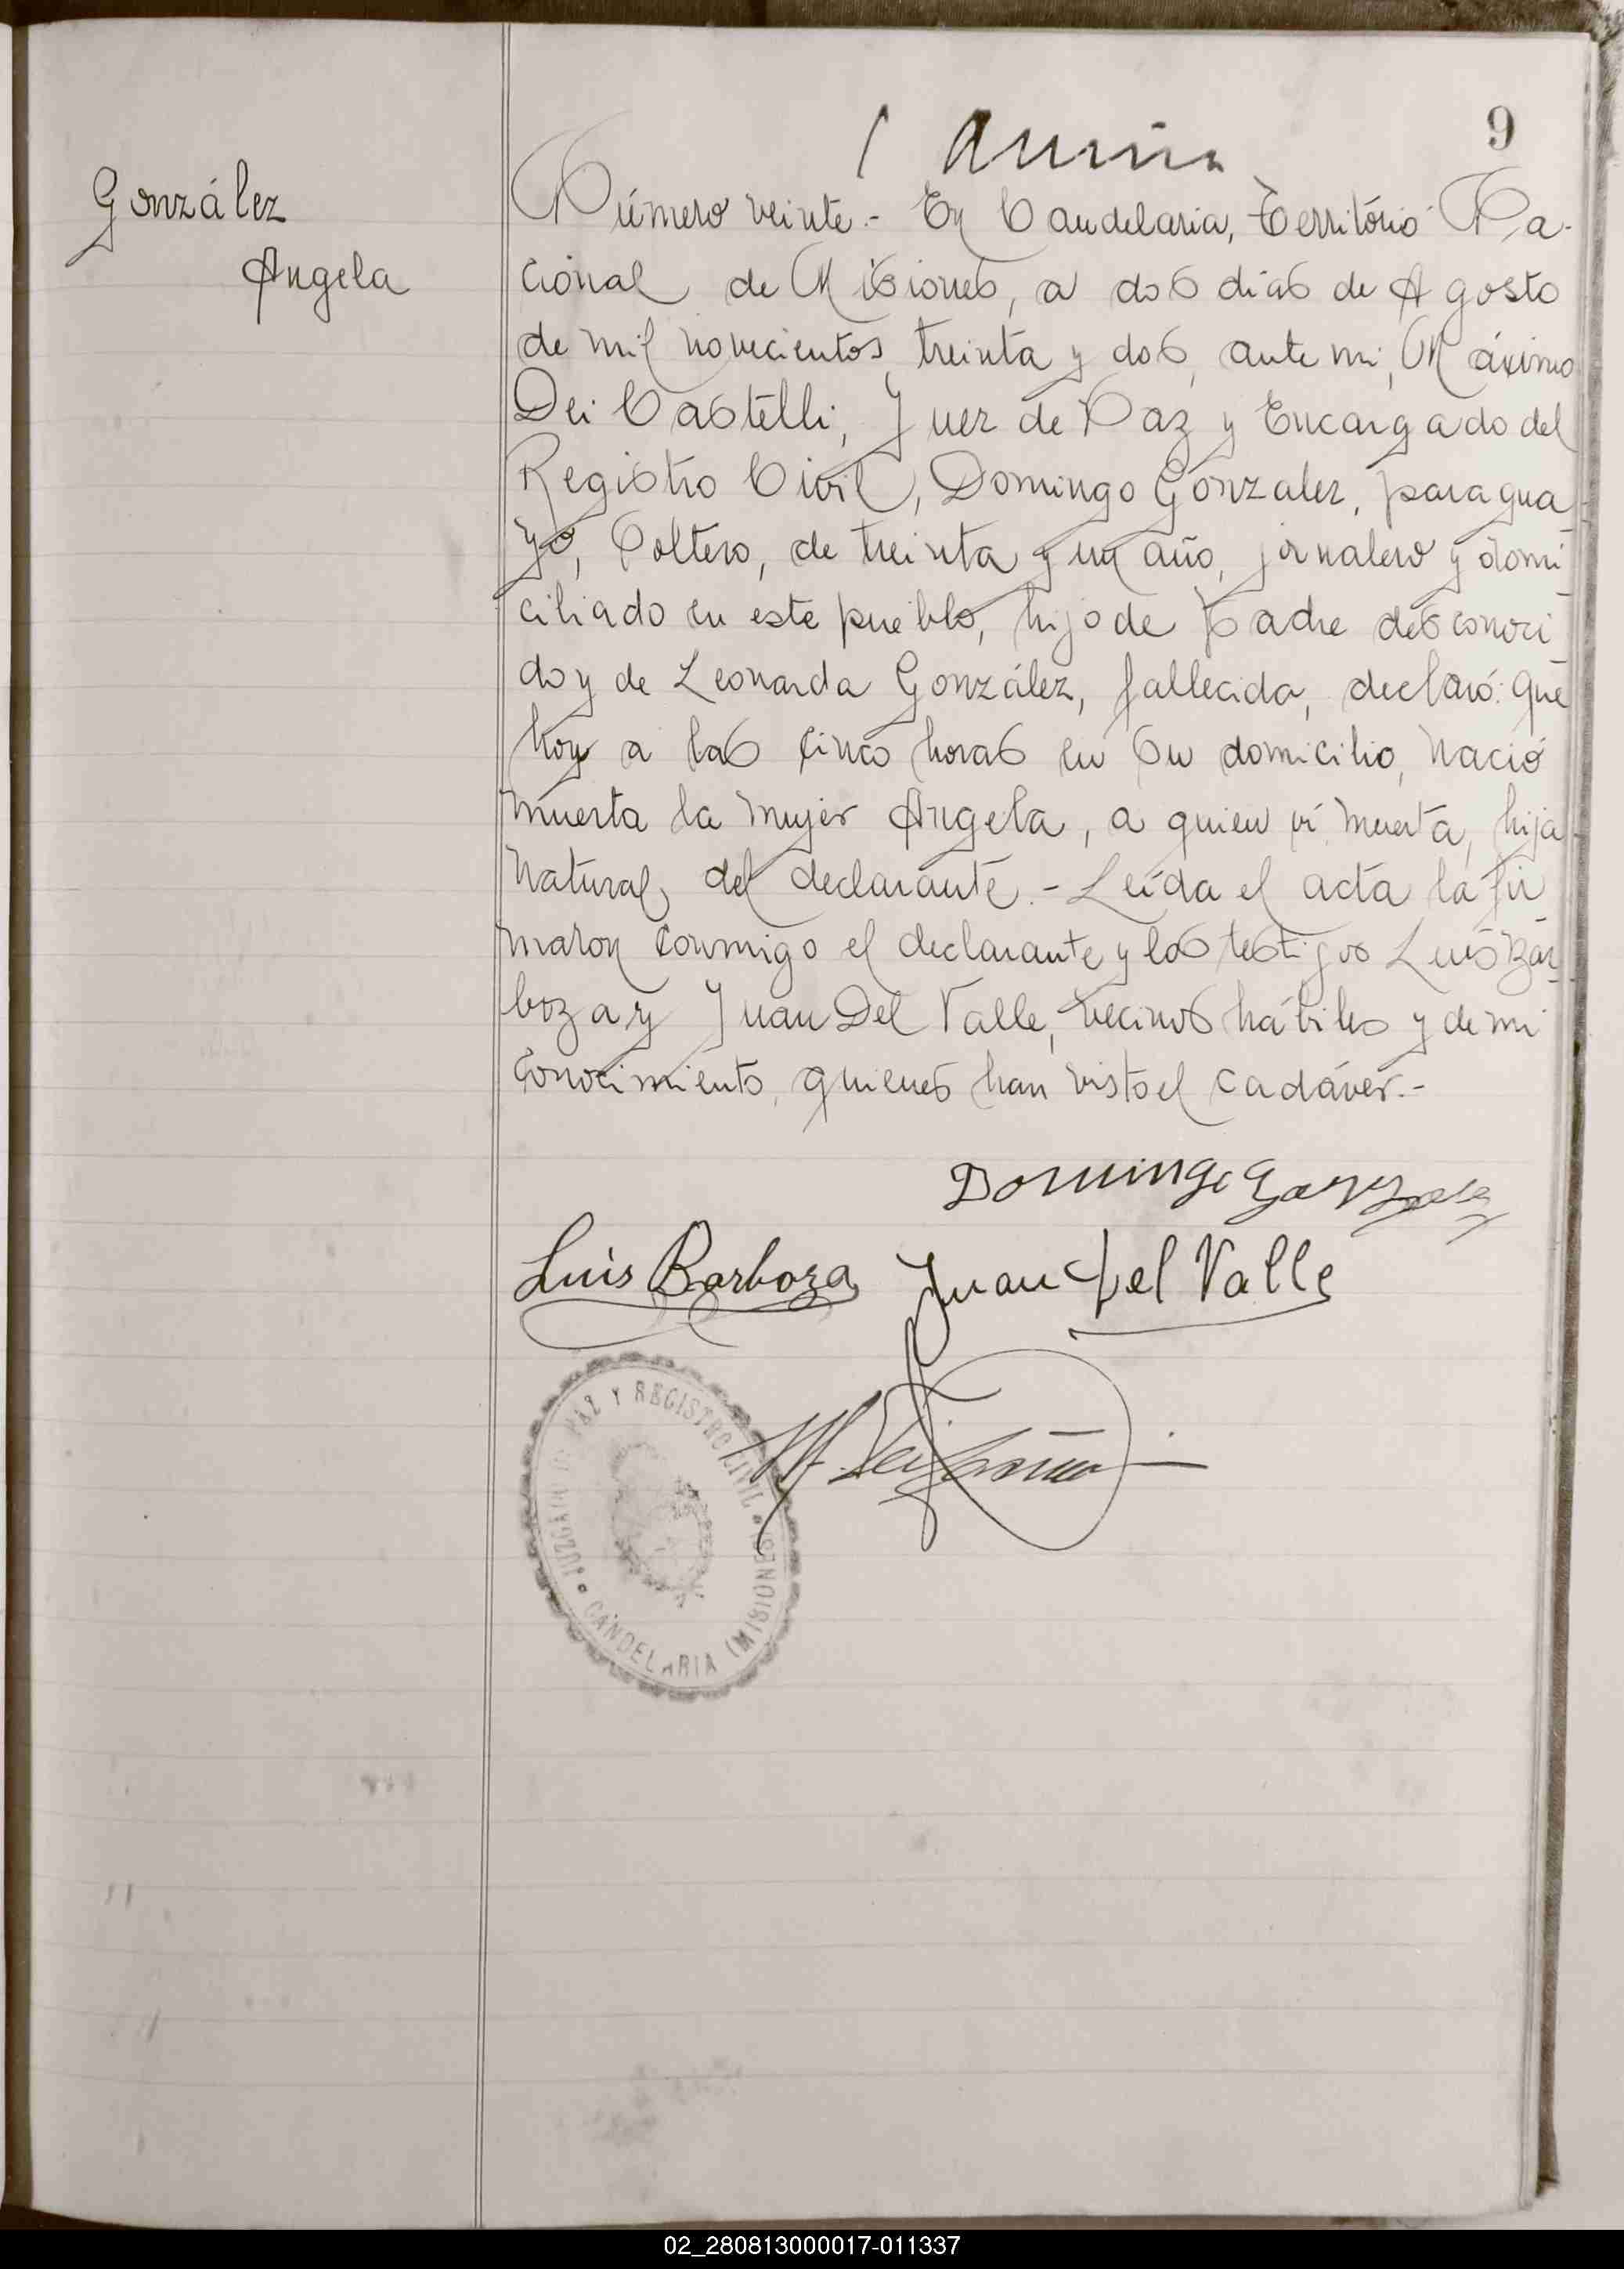 9
González
Angela
Número veinte.- En Candelaria, Território Na-
cional de Misiones, a dos dias de Agosto
de mil novecientos treinta y dos, ante mi, Máximo
Dei Castelli, Juez de Paz y Encargado del
Registro Civil, Domingo Gonzalez, paragua-
yo, soltero, de treinta y un año, jornalero y domi-
ciliado en este pueblo, hijo de Padre desconoci-
do y de Leonarda González, fallecida, declaró: que
hoy a las cinco horas en su domicilio, nació
muerta la mujer Angela, a quien ví muerta, hija
natural del declarante.- Leída el acta la fir-
maron conmigo el declarante y los testigos Luis Bar-
boza y Juan Del Valle, vecinos hábiles y de mi
conocimiento, quienes han visto el cadáver.-
Domingo Gonzalez
Luis Barboza Juan Del Valle
JUZGADO DE PAZ Y REGISTRO CIVIL
CANDELARIA (MISIONES)
02_280813000017-011337